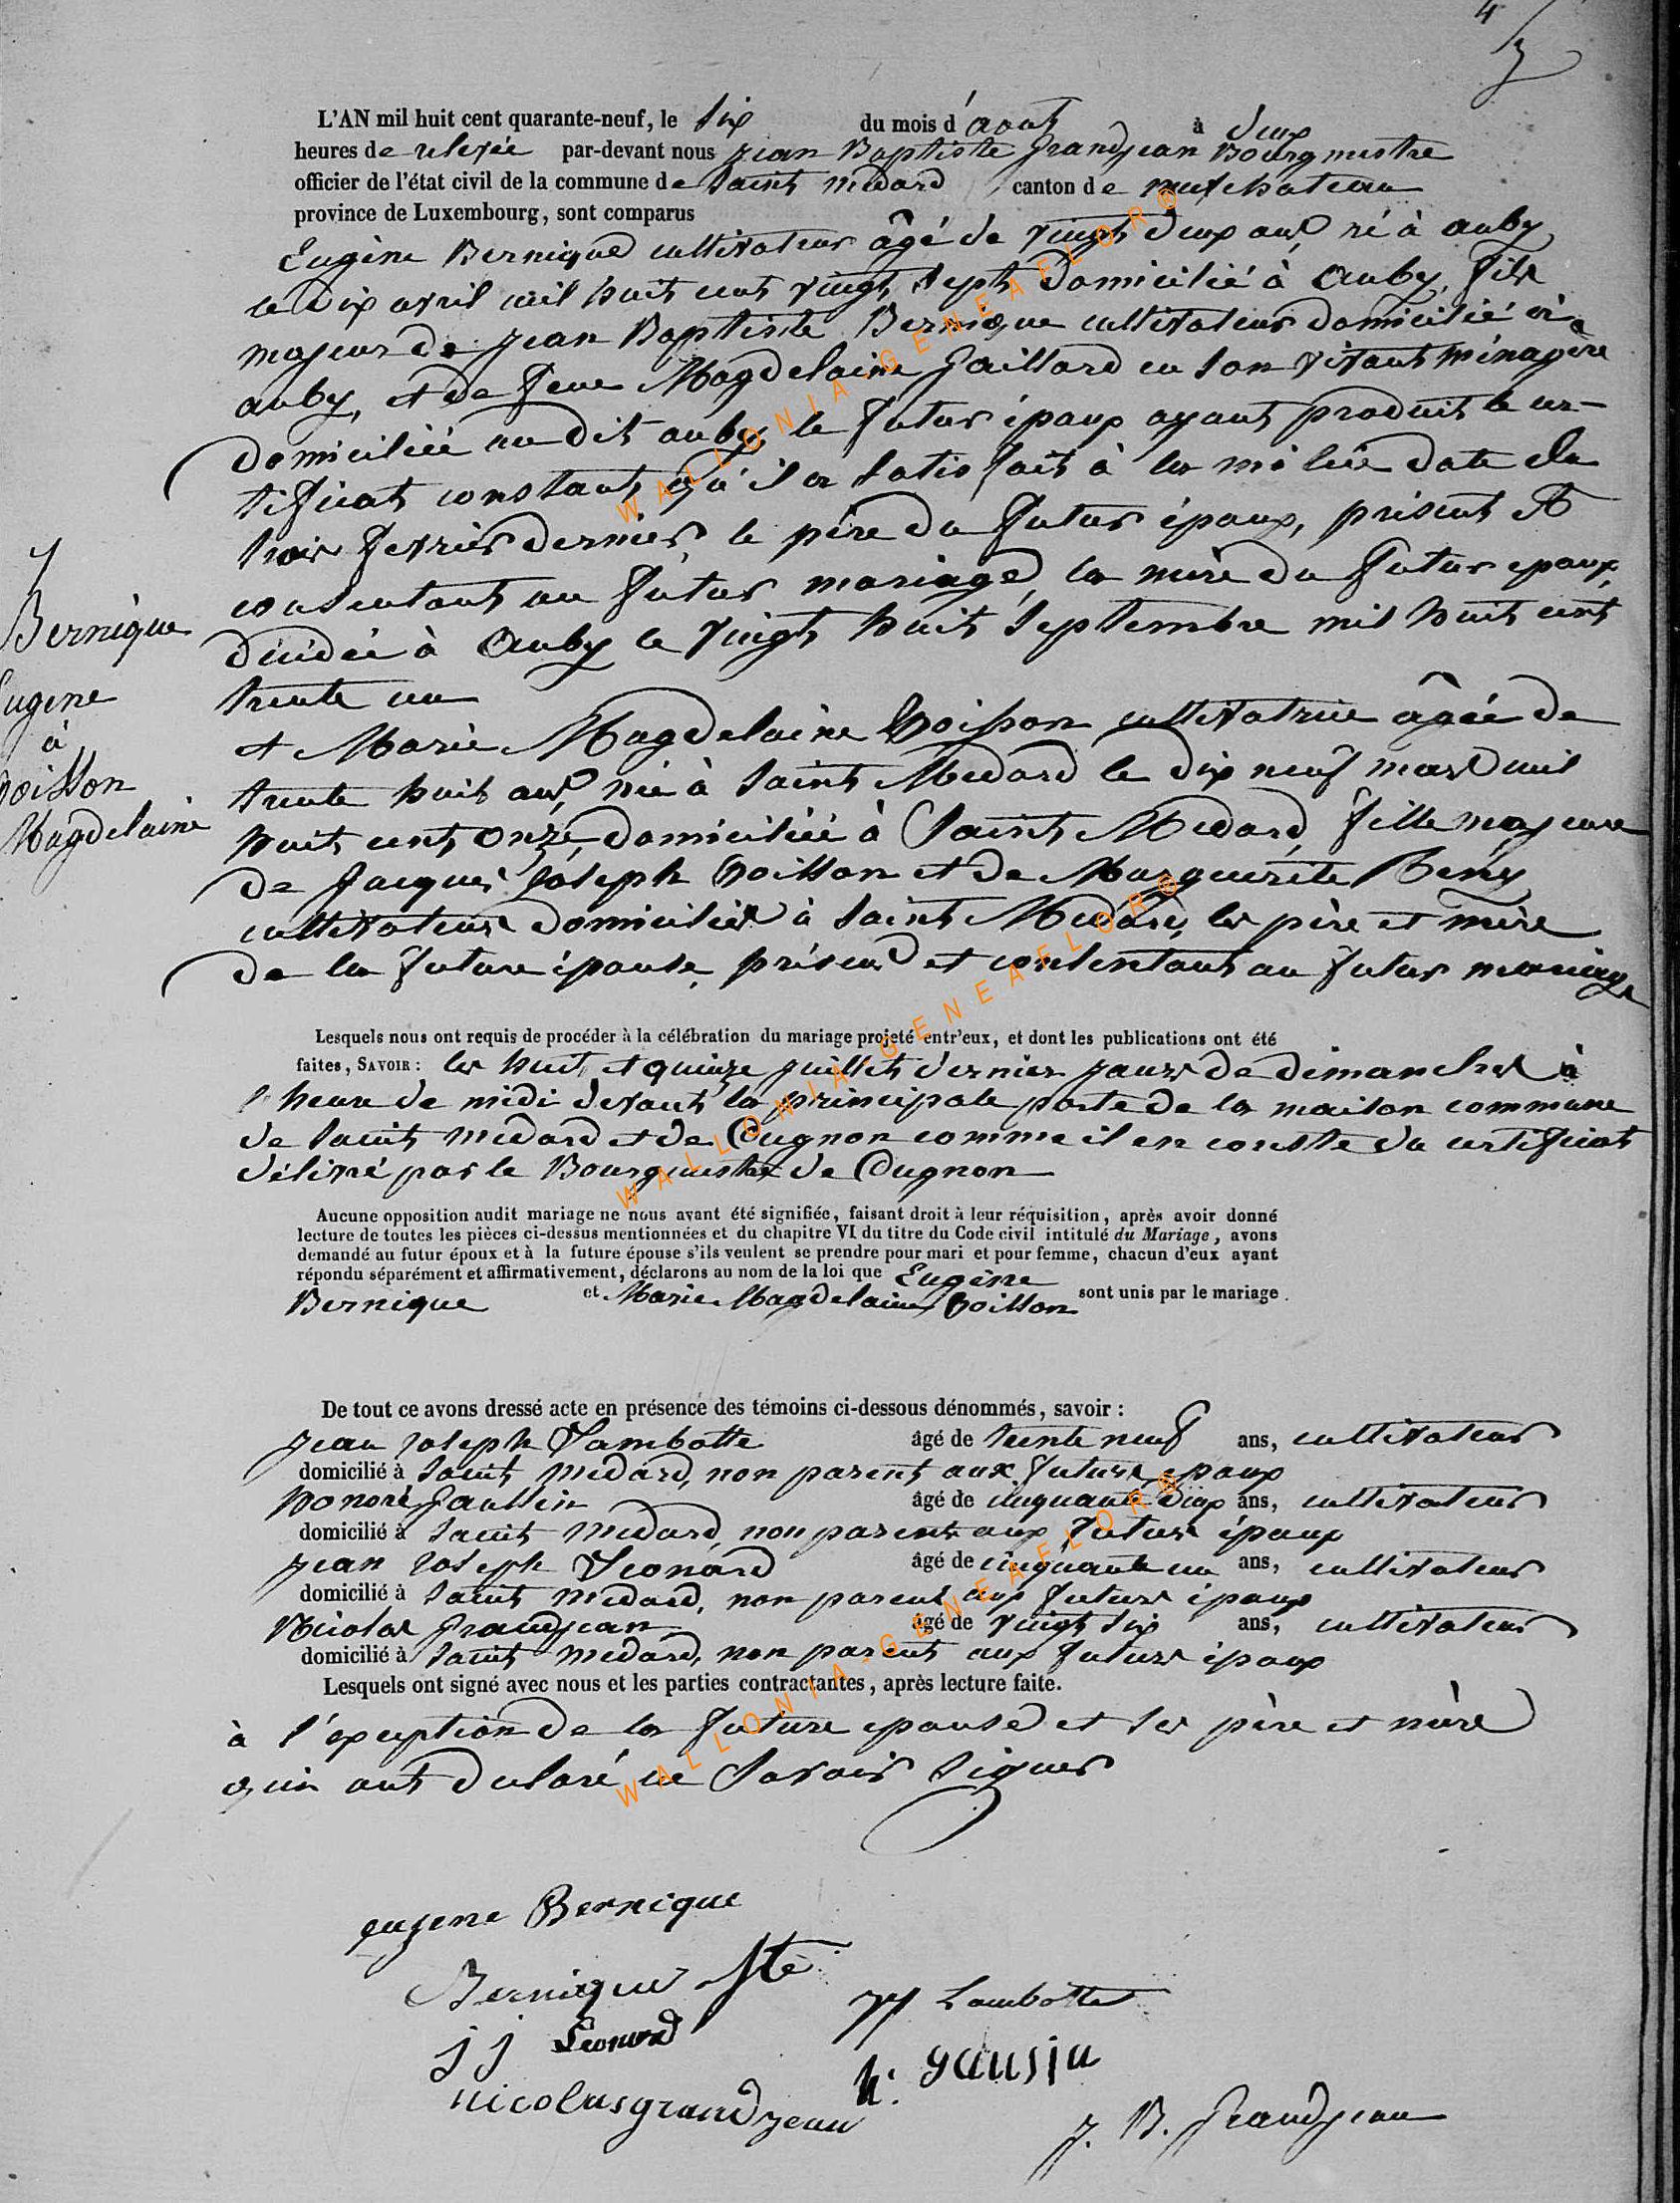 4
L'AN mil huit cent quarante-neuf, le six du mois d'aout à deux
heures de relevée par-devant nous jean Baptiste grandjean Bourgmestre
officier de l'état civil de la commune de saint médard canton de neufchateau
province de Luxembourg, sont comparus
Eugène Bernique cultivateur âgé de vingt deux ans né à auby
le dix avril mil huit cent vingt sept domicilié à auby, fils
majeur de jean Baptiste Bernique cultivateur domicilié à
auby, et de feue Magdelaine gaillard en son vivant ménagère
domiciliée au dit auby le futur époux ayant produit le cer-
tificat constant qu'il a satisfait à la milice date du
trois fevrier dernier, le père du futur époux, présent et
consentant au futur mariage, la mère du futur epoux,
décédée à Auby le vingt huit septembre mil huit cent
trente un
7
Bernique
Eugene
à
poisson
Magdelaine
et Marie Magdelaine poisson cultivatrice âgée de
trente huit ans, née à saint Médard le dix neuf mars mil
huit cent onze, domiciliée à Saint Médard, fille majeure
de Jacques Joseph poisson et de Marguerite Remy
cultivateurs domiciliés à saint Médard, les père et mère
de la future épouse, présens et consentant au futur mariage
Lesquels nous ont requis de procéder à la célébration du mariage projeté entr'eux, et dont les publications ont été
faites, SAVOIR : les huit et quinze juillet dernier jours de dimanches à
l'heure de midi devant la principale porte de la maison commune
de saint médard et de Cugnon comme il en conste du certificat
délivré par le Bourgmestre de Cugnon
Aucune opposition audit mariage ne nous ayant été signifiée, faisant droit à leur réquisition, après avoir donné
lecture de toutes les pièces ci-dessus mentionnées et du chapitre VI du titre du Code civil intitulé du Mariage, avons
demandé au futur époux et à la future épouse s'ils veulent se prendre pour mari et pour femme, chacun d'eux ayant
répondu séparément et affirmativement, déclarons au nom de la loi que Eugène
Bernique et Marie Magdelaine poisson sont unis par le mariage.
De tout ce avons dressé acte en présence des témoins ci-dessous dénommés, savoir :
jean joseph Lambotte âgé de trente neuf ans, cultivateur
domicilié à saint médard, non parent aux futurs epoux
honoré gaussin âgé de cinquante deux ans, cultivateur
domicilié à saint médard, non parent aux futurs époux
jean joseph Leonard âgé de cinquante un ans, cultivateur
domicilié à saint médard, non parent aux futurs époux
Nicolas grandjean âgé de vingt six ans, cultivateur
domicilié à saint médard, non parent aux futurs époux
Lesquels ont signé avec nous et les parties contractantes, après lecture faite.
à l'exception de la future epouse et ses père et mère
qui ont declaré ne savoir signer
eugene Bernique
Bernique Jte
JJ Lambotte
j j Leonard
h. gausin
nicolas grandjean
j. B. grandjean
WALLONIA-GENEAFLOR®
WALLONIA-GENEAFLOR®
WALLONIA-GENEAFLOR®